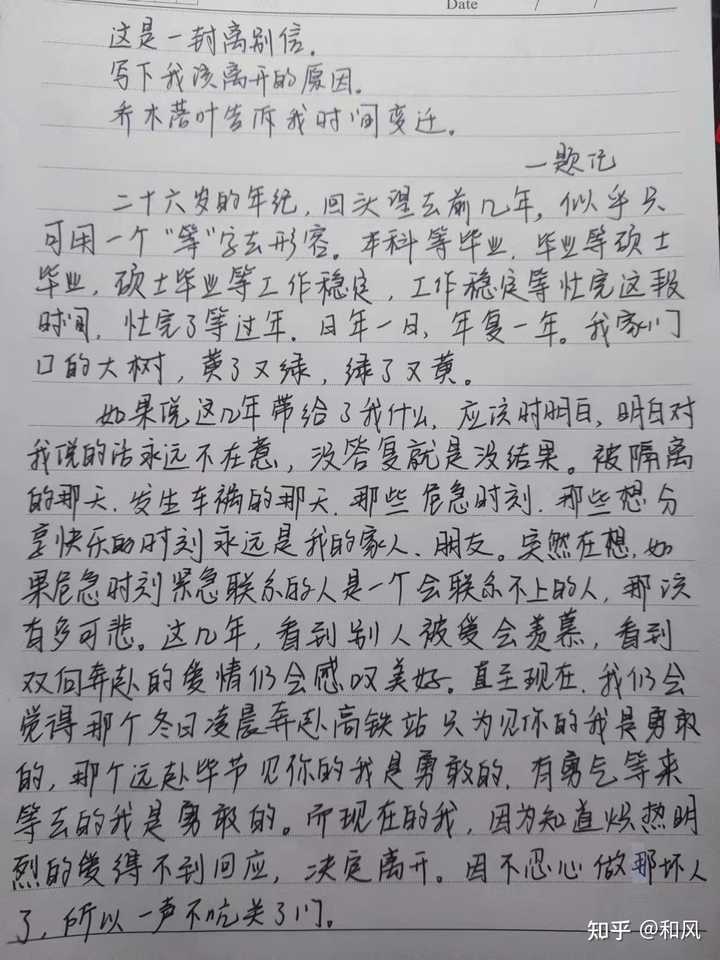 Date / /
这是一封离别信.
写下我该离开的原因.
乔木落叶告诉我时间变迁。
—题记
二十六岁的年纪,回头望去前几年,似乎只
可用一个"等"字去形容。本科等毕业,毕业等硕士
毕业,硕士毕业等工作稳定,工作稳定等忙完这段
时间,忙完了等过年.日年一日,年复一年。我家门
口的大树,黄了又绿,绿了又黄。
如果说这几年带给了我什么,应该时明白,明白对
我说的话永远不在意,没答复就是没结果。被隔离
的那天.发生车祸的那天.那些危急时刻.那些想分
享快乐的时刻永远是我的家人、朋友。突然在想,如
果危急时刻紧急联系的人是一个会联系不上的人,那该
有多可悲。这几年,看到别人被爱会羡慕,看到
双向奔赴的爱情仍会感叹美好。直至现在.我仍会
觉得那个冬日凌晨奔赴高铁站只为见你的我是勇敢
的,那个远赴毕节见你的我是勇敢的.有勇气等来
等去的我是勇敢的。而现在的我,因为知道炽热明
烈的爱得不到回应,决定离开。因不忍心做那坏人
了,所以一声不吭关了门。
知乎 @和风